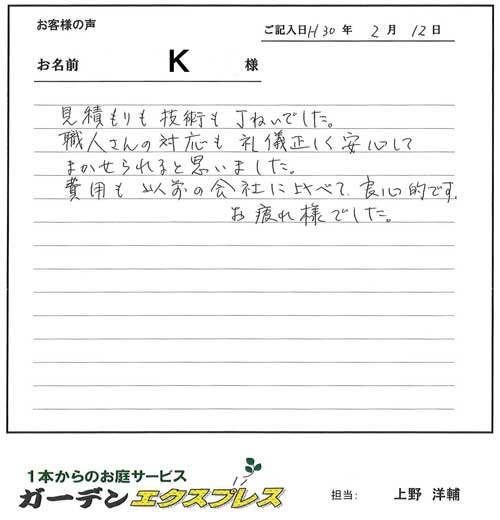 お客様の声
ご記入日 H30 年 2 月 12 日
お名前 K 様
見積もりも技術も丁ねいでした。
職人さんの対応も礼儀正しく安心して
まかせられると思いました。
費用も以前の会社に比べて、良心的です。
お疲れ様でした。
1本からのお庭サービス
ガーデンエクスプレス
担当: 上野 洋輔